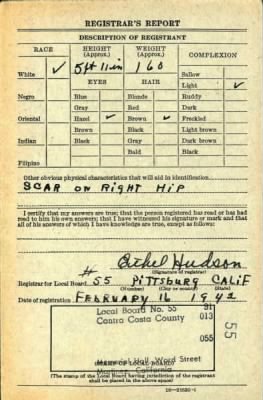 REGISTRAR'S REPORT
DESCRIPTION OF REGISTRANT
RACE HEIGHT (Approx.) WEIGHT (Approx.) COMPLEXION
White ✓ 5 ft 11 in 160 Sallow
EYES HAIR Light ✓
Negro Blue Blonde Ruddy
Gray Red Dark
Oriental Hazel ✓ Brown ✓ Freckled
Brown Black Light brown
Indian Black Gray Dark brown
Bald Black
Filipino
Other obvious physical characteristics that will aid in identification
SCAR on Right Hip
I certify that my answers are true; that the person registered has read or has had
read to him his own answers; that I have witnessed his signature or mark and that
all of his answers of which I have knowledge are true, except as follows:
Ethel Hudson
(Signature of registrar)
Registrar for Local Board 55 Pittsburg CALIF
(Number) (City or county) (State)
Date of registration FEBRUARY 16 1942
Local Board No. 55 91
Contra Costa County 013
055
55
Memorial Hall, Ward Street
Martinez, California
(STAMP OF LOCAL BOARD)
(The stamp of the Local Board having jurisdiction of the registrant
shall be placed in the above space)